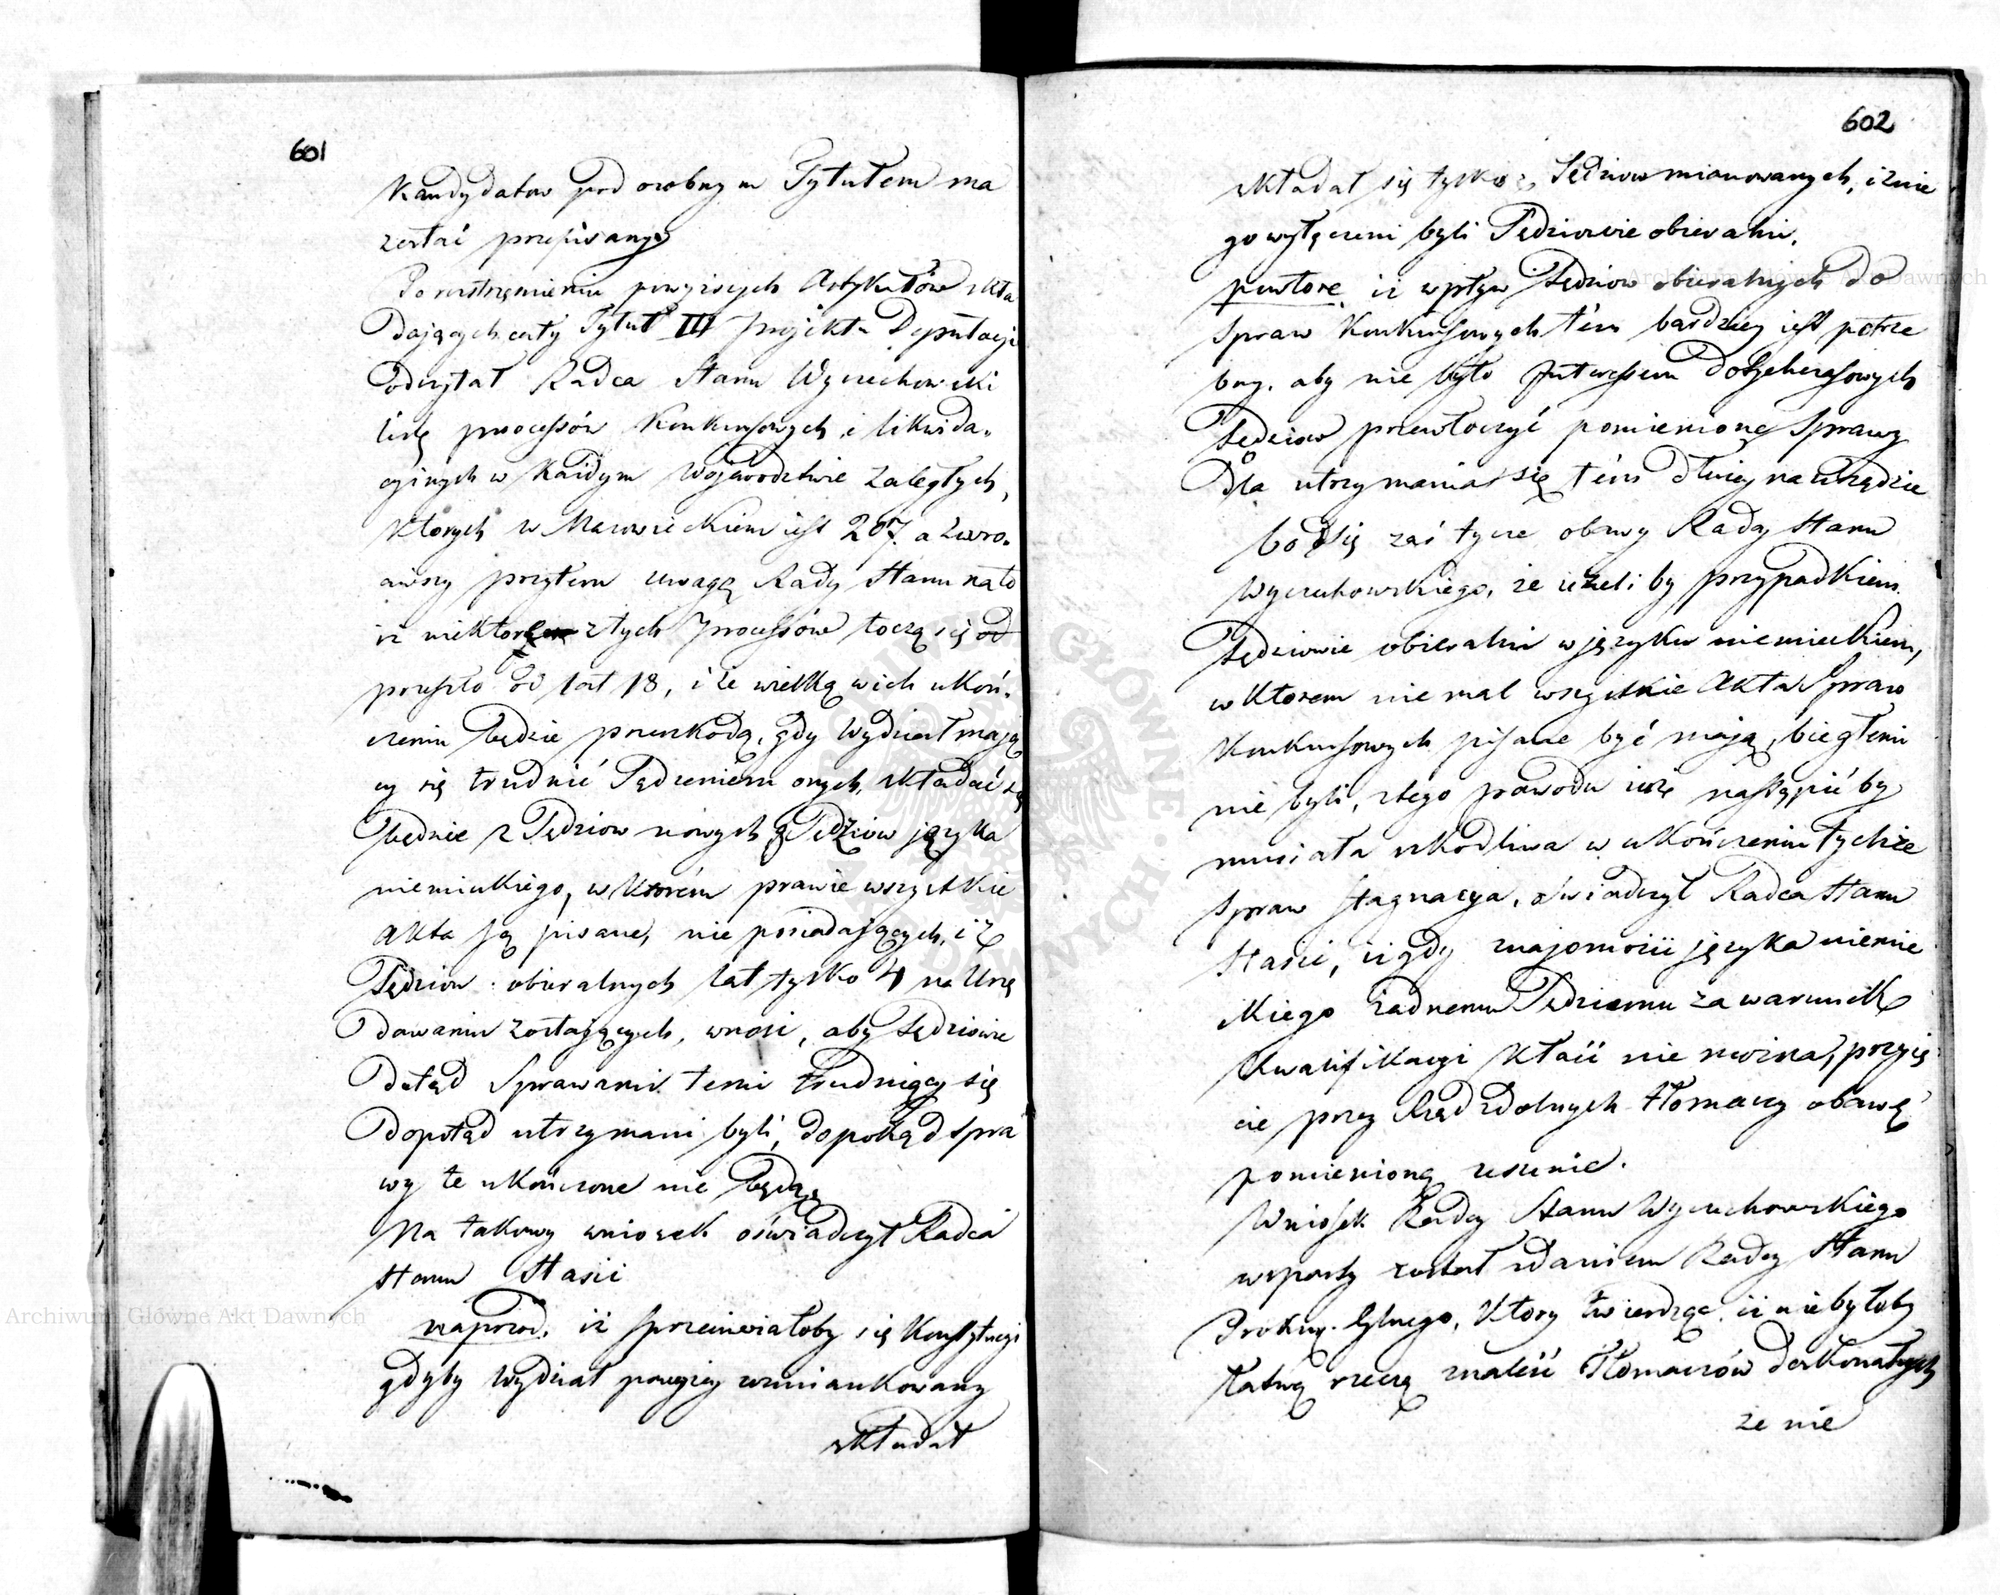 601
Kandydatow pod osobnym Tytułem ma
zostać przepisany
Po roztrząśnieniu powyższych Artykułów skła
daiących cały Tytuł III Projektu Deputacji
odczytał Radca Stanu Wyczechowski
listę processów Konkursowych i likwida-
cyinych w każdym Woiewodztwie zaległych,
których w Mazowieckiem iest 207. a zwro-
ciwszy przytem uwagę Rady Stanu na to
iż niektóre z tych Processów toczą się od
przeszło od lat 18, i że wielką w ich ukoń-
czeniu będzie przeszkodą, gdy Wydział maią
cy się trudnić Sądzeniem onych, składać się
będzie z Sędziow nowych z Sędziow języka
niemieckiego, w którém prawie wszystkie
Akta są pisane, nie posiadaiących, i z
Sędziow obieralnych lat tylko 4 na Urzę
dowaniu zostaiących, wnosi, aby Sędziowie
dotąd Sprawami temi trudniący się
dopotąd utrzymani byli, dopokąd Spra
wy te ukończone nie będą
Na takowy wniosek oświadczył Radca
Stanu Stasic
naprzód, iż sprzeciwiałoby się Konstytucyi
gdyby Wydział powyżey wzmiankowany
składał
602
składał się tylko z Sędziow mianowanych, i z nie
go wyłączeni byli Sędziowie obieralni.
powtore, iż wpływ Sędziow obieralnych do
Spraw Konkursowych tém bardziey iest potrze
bny, aby nie było Interessem dotychczasowych
Sędziow przewłoczyć pomienione Sprawy
dla utrzymania się tém dłużey na urzędzie
Co się zaś tycze obawy Radcy Stanu
Wyczechowskiego, że ieżeli by przypadkiem
Sędziowie obieralni w języku niemieckiem,
w którem nie mal wszystkie Akta Spraw
Konkursowych pisane być maią, biegłemi
nie byli, z tego powodu iuż nastąpić by
musiała szkodliwa w ukończeniu tychże
Spraw stagnacya, oświadczył Radca Stanu
Stasic, iż gdy znajomości języka niemie
ckiego żadnemu Sędziemu za warunek
Kwalifikacyi kłaść nie można, przyię
cie przez Rząd zdolnych tłomaczy obawę
pomienioną usunie.
Wniosek Radcy Stanu Wyczechowskiego
wsparty został zdaniem Radcy Stanu
Prokur. Glnego, który twierdząc iż nie byłoby
łatwą rzeczą znaleść Tłomaczów doskonałych
że nie
Archiwum Główne Akt Dawnych
Archiwum Główne Akt Dawnych